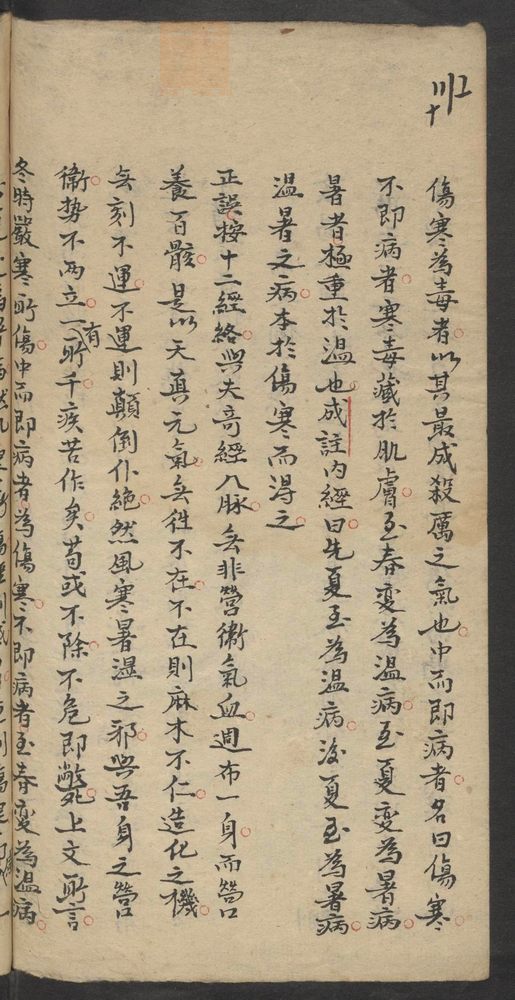 傷寒為毒者以其最成殺厲之氣也中而即病者名曰傷寒
不即病者寒毒藏於肌膚至春變為溫病至夏變為暑病
暑者極重於溫也成註內經曰先夏至為溫病後夏至為暑病
溫暑之病本於傷寒而淂之
正誤按十二經絡與夫奇經八脉無非營衛氣血週布一身而營
養百骸是以天真元氣無徃不在不在則麻木不仁造化之機
無刻不運不運則顛倒仆絕然風寒暑濕之邪與吾身之營
衛势不两立一有所干疾苦作矣苟或不除不危即斃上文所言
冬時嚴寒所傷中而即病者為傷寒不即病者至春變為溫病